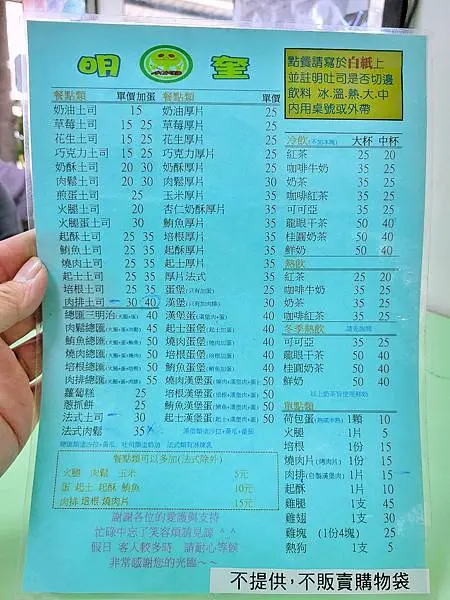 明 奎
點餐請寫於白紙上
並註明吐司是否切邊
飲料 冰.溫.熱.大.中
內用桌號或外帶
餐點類 單價 加蛋
奶油土司 15
草莓土司 15 25
花生土司 15 25
巧克力土司 15 25
奶酥土司 20 30
肉鬆土司 20 30
煎蛋土司 25
火腿土司 20
火腿蛋土司 30
起酥土司 25 35
鮪魚土司 25 35
燒肉土司 25 35
起士土司 25 35
培根土司 25 35
肉排土司 30 40
總匯三明治 40
肉鬆總匯 45
鮪魚總匯 50
燒肉總匯 50
培根總匯 50
肉排總匯 55
蘿蔔糕 25
蔥抓餅 25
法式土司 30
法式肉鬆 35
餐點類 單價
奶油厚片 25
草莓厚片 25
花生厚片 25
巧克力厚片 25
奶酥厚片 25
肉鬆厚片 30
玉米厚片 35
杏仁奶酥厚片 35
鮪魚厚片 35
起酥厚片 35
培根厚片 35
起士厚片 35
厚片法式 35
蛋堡(只有加蛋) 25
漢堡(只有加肉排) 30
漢堡蛋 40
起士蛋堡 40
燒肉蛋堡 40
培根蛋堡 40
鮪魚蛋堡 40
燒肉漢堡蛋 50
培根漢堡蛋 50
鮪魚漢堡蛋 50
起士漢堡蛋 50
冷飲(不加冰塊) 大杯 中杯
紅茶 25 20
咖啡牛奶 35 25
奶茶 35 25
咖啡紅茶 35 25
可可亞 35 25
龍眼干茶 50 40
桂圓奶茶 50 40
鮮奶 50 40
熱飲
紅茶 25 20
咖啡牛奶 35 25
奶茶 35 25
咖啡紅茶 35 25
冬季熱飲 請先詢問
可可亞 35 25
龍眼干茶 50 40
桂圓奶茶 50 40
鮮奶 50 40
以上奶茶皆使用鮮奶
單點類
荷包蛋 1顆 10
火腿 1片 5
培根 1份 15
燒肉片 1份 15
肉排(自製漢堡肉) 1片 15
起酥 1片 10
雞腿 1支 45
雞翅 1支 30
雞塊 (1份4塊) 25
熱狗 1支 5
餐點類可以多加(法式除外)
火腿 肉鬆 玉米 5元
蛋 起士 起酥 鮪魚 10元
肉排 培根 燒肉片 15元
謝謝各位的愛護與支持
忙碌中忘了笑容煩請見諒 ^ ^
假日 客人較多時 請耐心等候
非常感謝您的光臨～～
不提供,不販賣購物袋